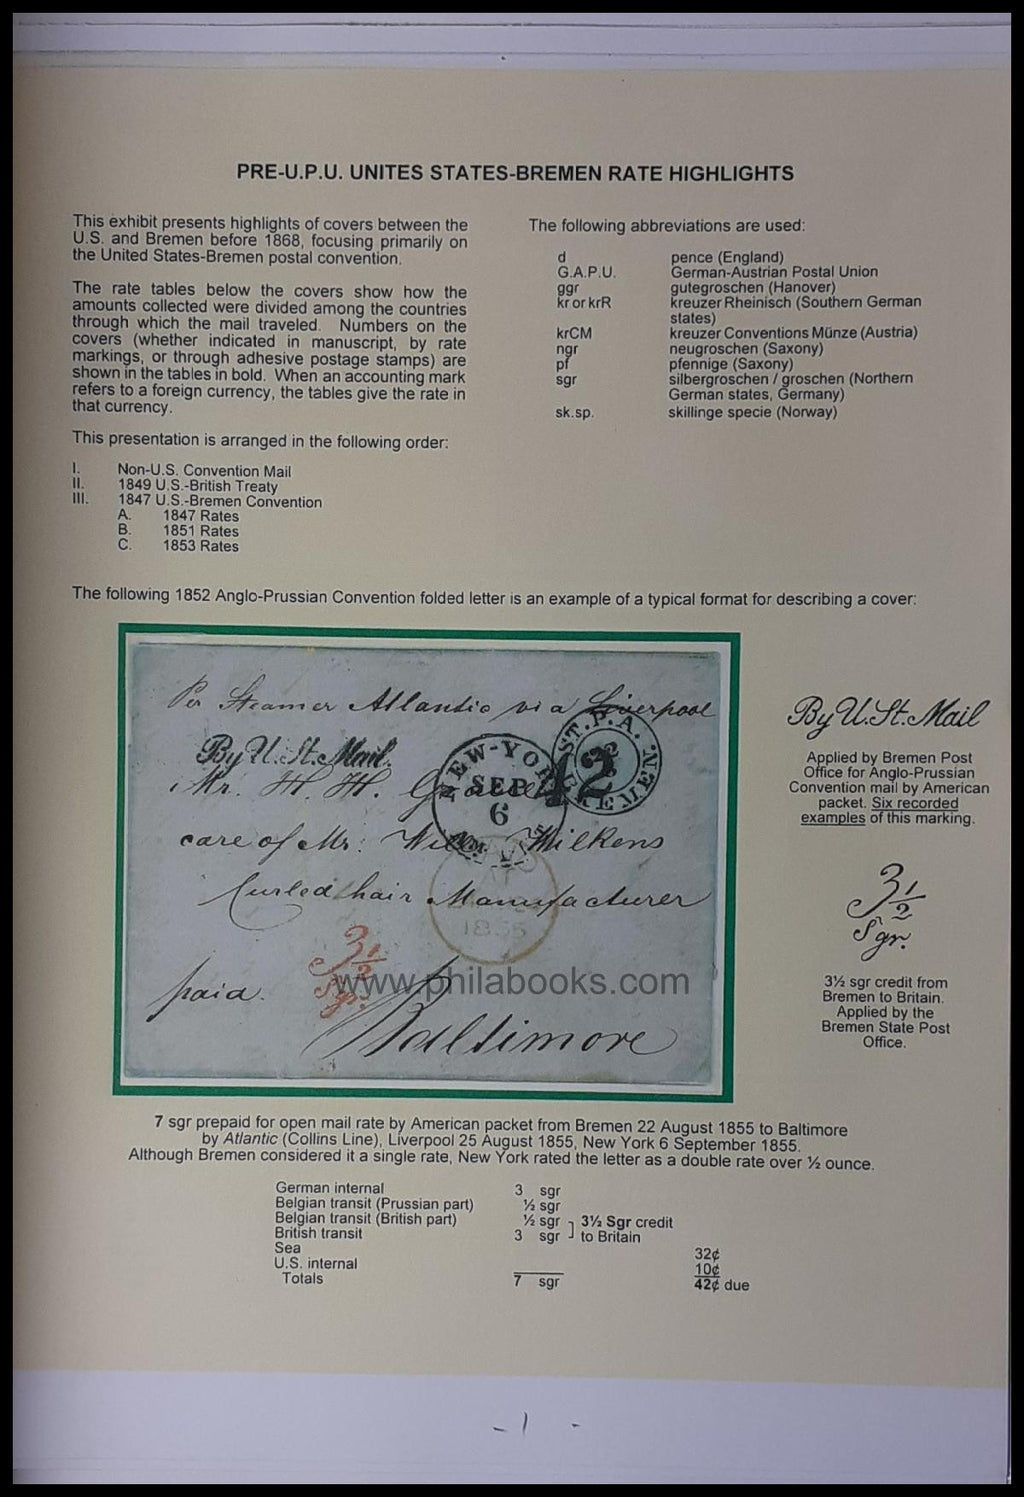 PRE-U.P.U. UNITES STATES-BREMEN RATE HIGHLIGHTS
This exhibit presents highlights of covers between the
U.S. and Bremen before 1868, focusing primarily on
the United States-Bremen postal convention.
The rate tables below the covers show how the
amounts collected were divided among the countries
through which the mail traveled. Numbers on the
covers (whether indicated in manuscript, by rate
markings, or through adhesive postage stamps) are
shown in the tables in bold. When an accounting mark
refers to a foreign currency, the tables give the rate in
that currency.
This presentation is arranged in the following order:
I. Non-U.S. Convention Mail
II. 1849 U.S.-British Treaty
III. 1847 U.S.-Bremen Convention
A. 1847 Rates
B. 1851 Rates
C. 1853 Rates
The following abbreviations are used:
d pence (England)
G.A.P.U. German-Austrian Postal Union
ggr gutegroschen (Hanover)
kr or krR kreuzer Rheinisch (Southern German
states)
krCM kreuzer Conventions Münze (Austria)
ngr neugroschen (Saxony)
pf pfennige (Saxony)
sgr silbergroschen / groschen (Northern
German states, Germany)
sk.sp. skillinge specie (Norway)
The following 1852 Anglo-Prussian Convention folded letter is an example of a typical format for describing a cover:
Per Steamer Atlantic via Liverpool
By U. St. Mail.
NEW-YORK
SEP
6
ST.P.A.
BREMEN
42
Mr. H. H.
care of Mr. Wilkens
Curled hair Manufacturer
1855
3½
Sgr.
paid.
Baltimore
www.philabooks.com
By U. St. Mail
Applied by Bremen Post
Office for Anglo-Prussian
Convention mail by American
packet. Six recorded
examples of this marking.
3½
Sgr.
3½ sgr credit from
Bremen to Britain.
Applied by the
Bremen State Post
Office.
7 sgr prepaid for open mail rate by American packet from Bremen 22 August 1855 to Baltimore
by Atlantic (Collins Line), Liverpool 25 August 1855, New York 6 September 1855.
Although Bremen considered it a single rate, New York rated the letter as a double rate over ½ ounce.
German internal 3 sgr
Belgian transit (Prussian part) ½ sgr
Belgian transit (British part) ½ sgr 3½ Sgr credit
British transit 3 sgr to Britain
Sea 32¢
U.S. internal 10¢
Totals 7 sgr 42¢ due
- 1 -